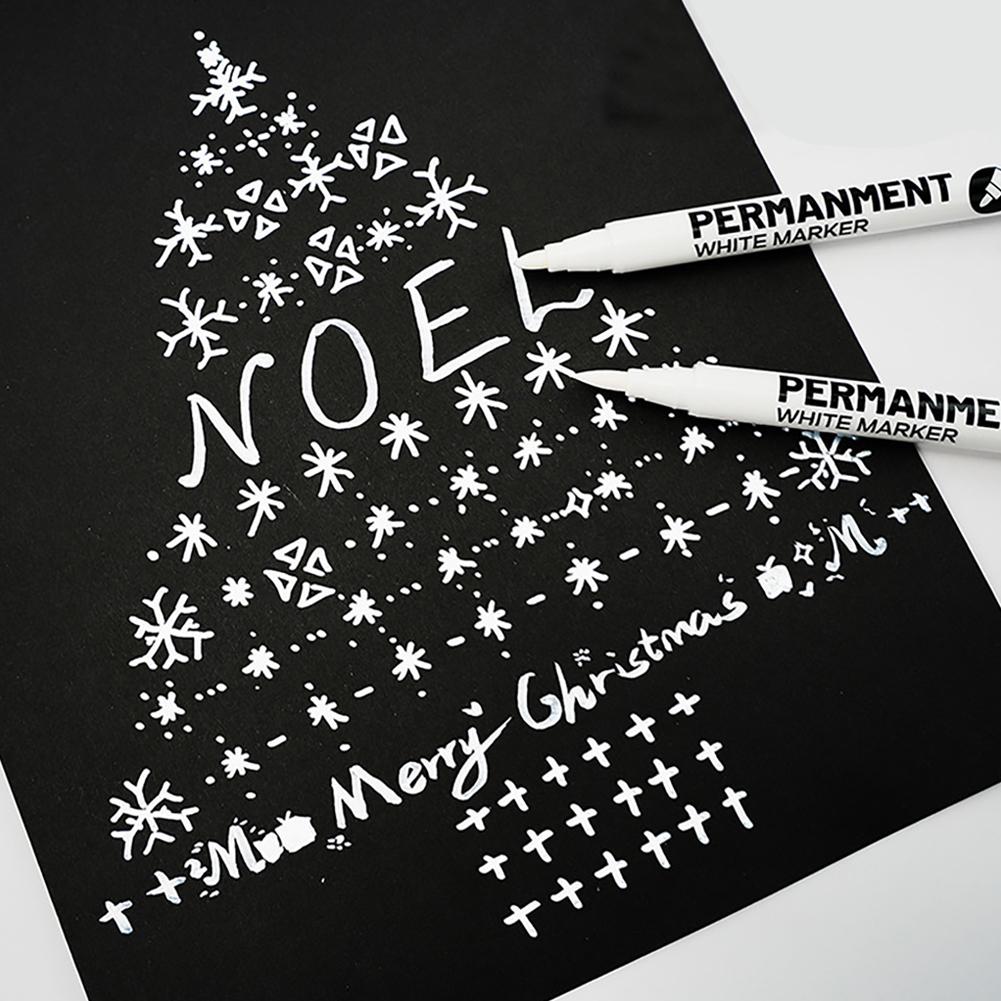 NOEL
PERMANMENT
WHITE MARKER
PERMANME
WHITE MARKER
Merry Christmas